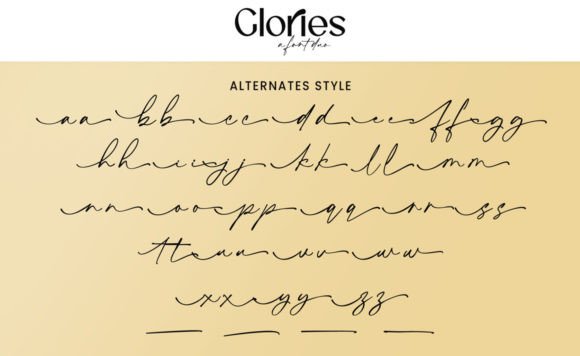 Glories
a font duo
ALTERNATES STYLE
aa bb cc dd ee ff gg
hh ii jj kk ll mm
nn oo pp qq rr ss
tt uu vv ww
xx yy zz